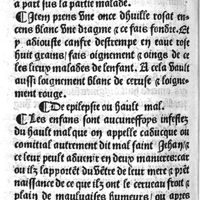 a part sus la partie malade.
¶Item prens vne once dhuille rosat en
cens blanc vne dragme & le fais fondre. Et
y adiouste canfre destrempe en eaue rose
huit grains/ fais oignement & oings de ce
les lieux malades de lenfant. A cela vault
aussi loignement blanc de ceruse & loigne
ment rouge.
¶De epilepsie ou hault mal.
¶Les enfans sont aucuneffoys infestez
du hault mal que on appelle caducque ou
comitial autrement dit mal saint Jehan/&
ce leur peult aduenir en deux manieres: car
ou ilz lapportẽt du vẽtre de leur mere & prẽt
naissance de ce que ilz ont le cerueau froit &
plain de mauluaises humeurs/ ou apres